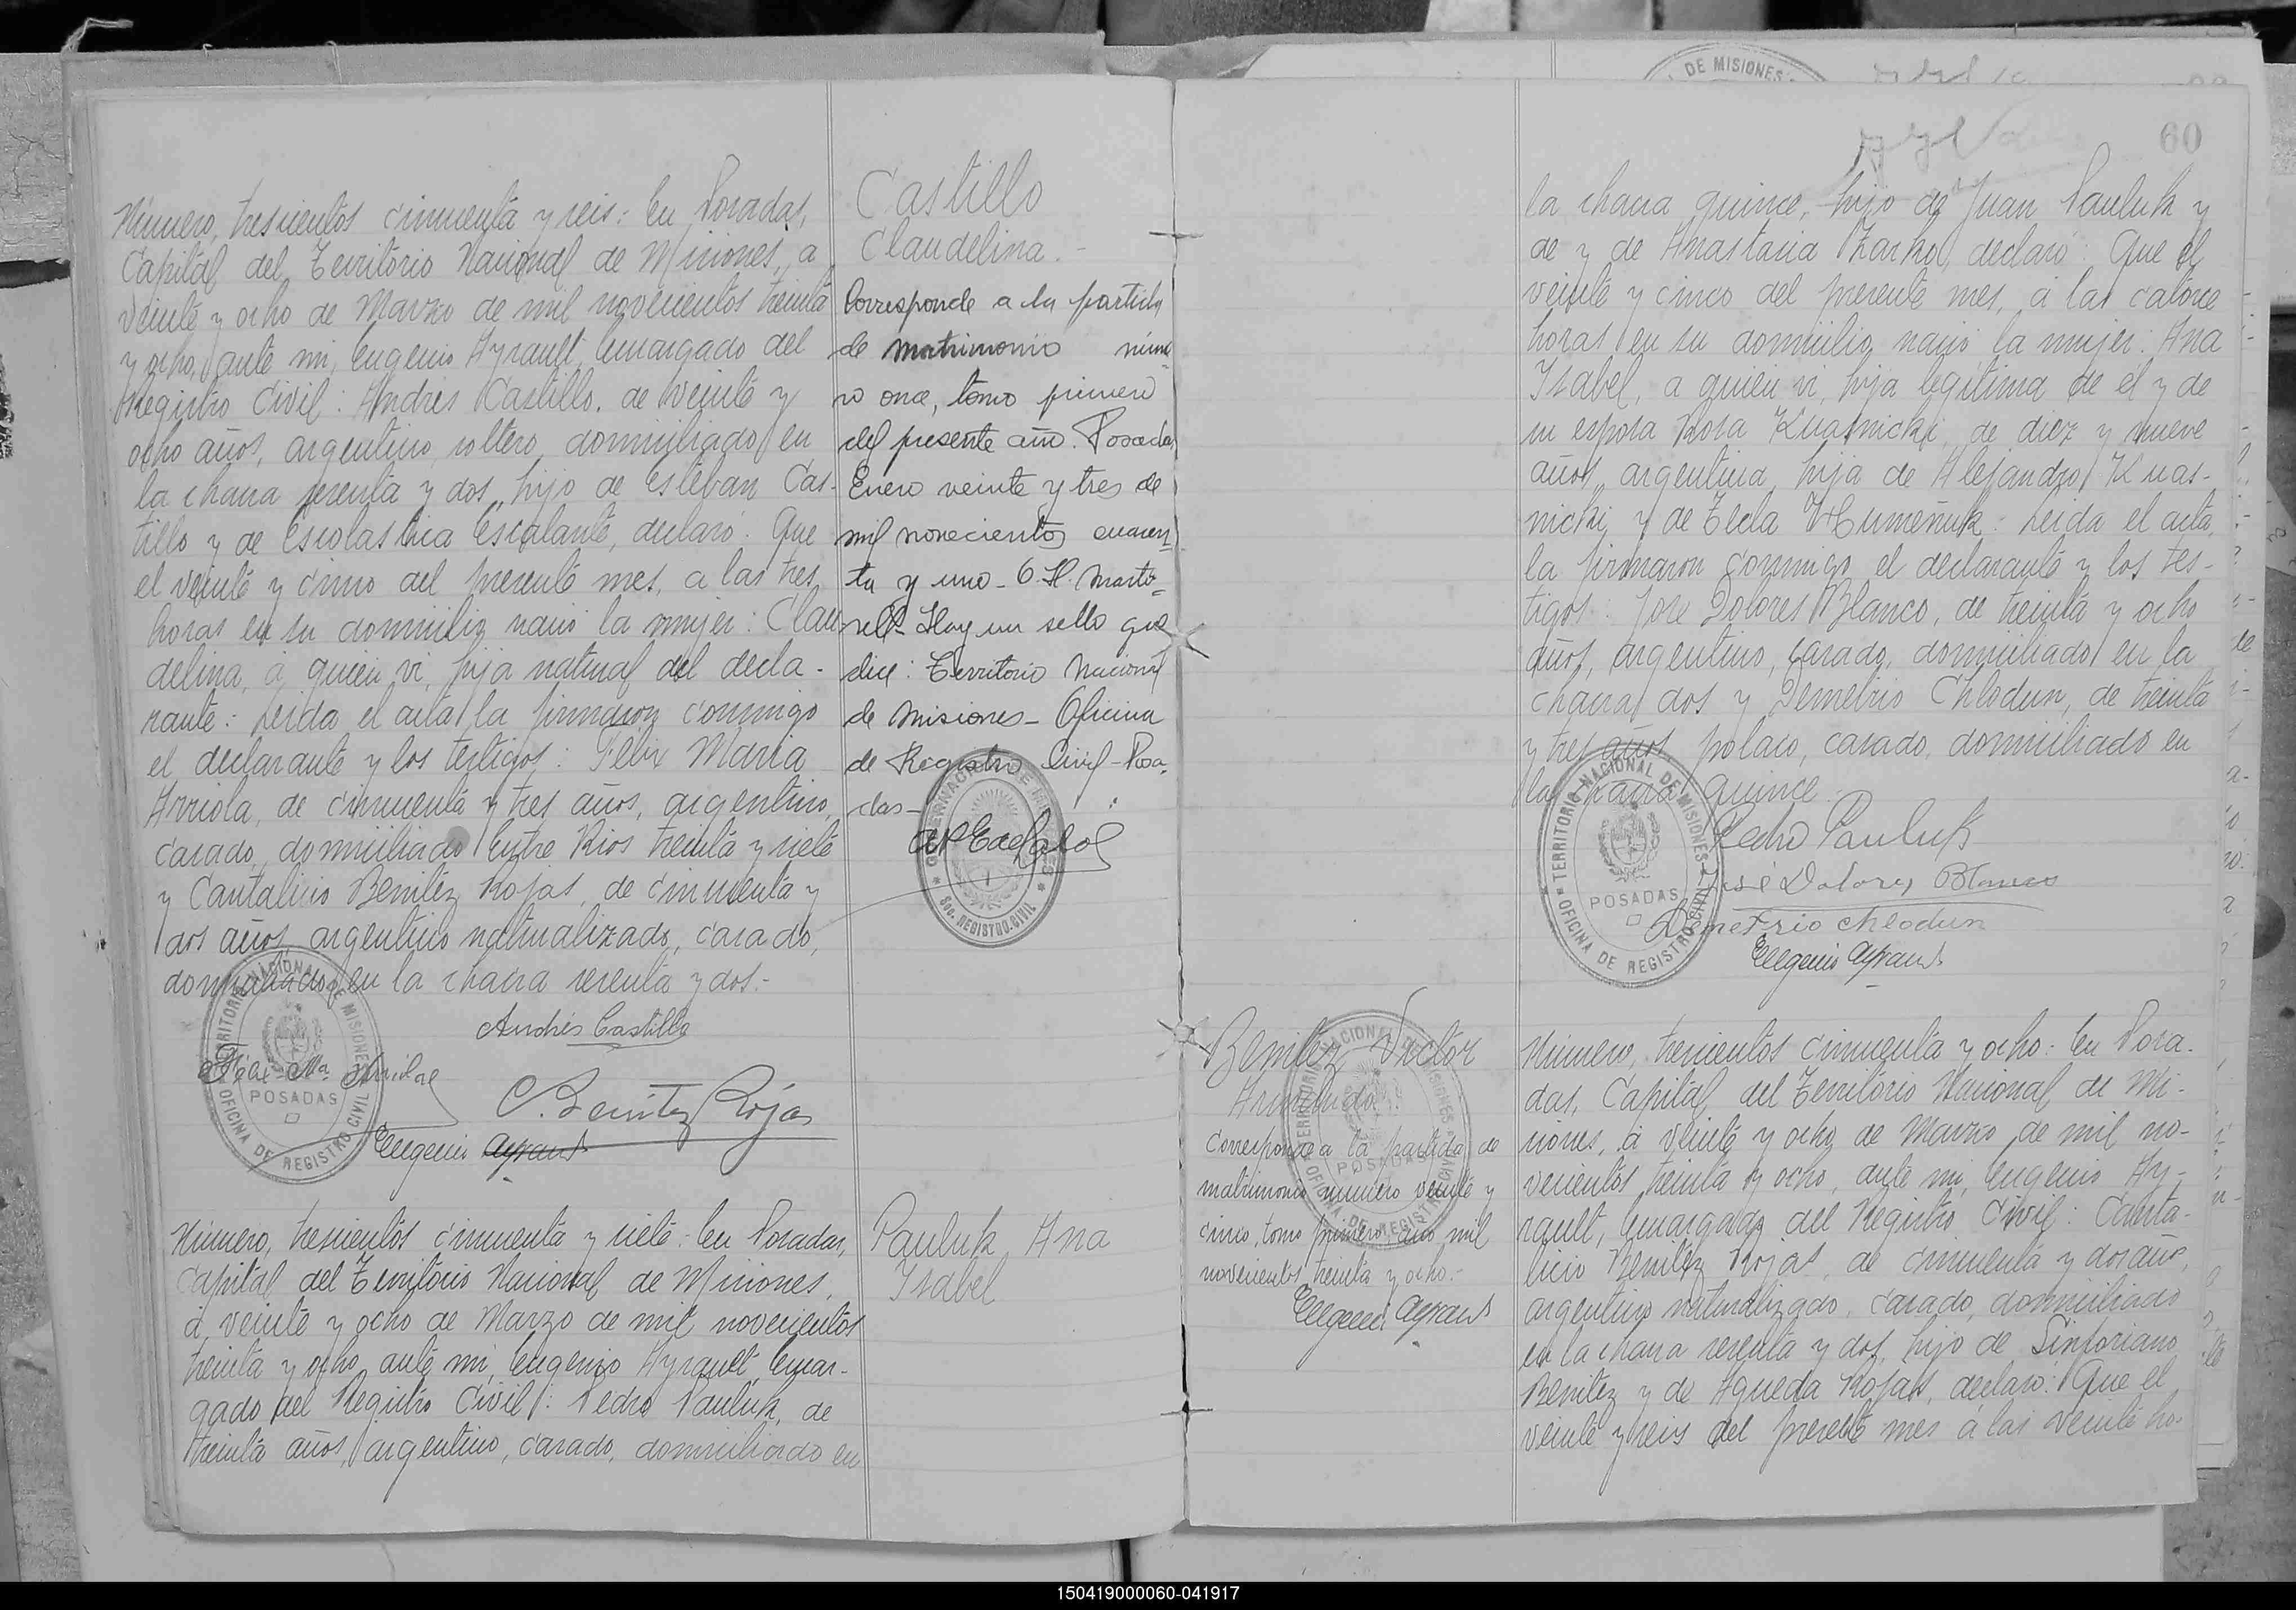 Número, trescientos cincuenta y seis: En Posadas,
Capital del Territorio Nacional de Misiones, a
veinte y ocho de Marzo de mil novecientos treinta
y ocho, ante mi, Eugenio Ayrault, Encargado del
Registro Civil: Andres Castillo, de veinte y
ocho años, argentino, soltero, domiciliado en
la chacra sesenta y dos, hijo de Esteban Cas-
tillo y de Escolastica Escalante, declaró: Que
el veinte y cinco del presente mes, a las tres
horas en su domicilio nació la mujer: Clau-
delina, á quien vi, hija natural del decla-
rante: Leida el acta la firmaron conmigo
el declarante y los testigos: Felix Maria
Arriola, de cincuenta y tres años, argentino,
casado, domiciliado Entre Rios treinta y siete
y Cantalicio Benitez Rojas, de cincuenta y
dos años, argentino naturalizado, casado,
domiciliado en la chacra sesenta y dos.-
Andrés Castillo
Félix Ma Arriola
C. Benitez Rojas
Eugenio Ayrault
TERRITORIO NACIONAL DE MISIONES
POSADAS
OFICINA DE REGISTRO CIVIL
Castillo
Claudelina.-
Corresponde a la partida
de matrimonio núme-
ro once, tomo primero
del presente año. Posadas
Enero veinte y tres de
mil novecientos cuaren-
ta y uno - C. H. Marto-
rell - Hay un sello que
dice: Territorio Nacional
de Misiones - Oficina
de Registro Civil - Posa-
das -
REGISTRO CIVIL
Número, trescientos cincuenta y siete: En Posadas,
Capital del Territorio Nacional de Misiones,
á veinte y ocho de Marzo de mil novecientos
treinta y ocho, ante mi, Eugenio Ayrault, Encar-
gado del Registro Civil: Pedro Pauluk, de
treinta años, argentino, casado, domiciliado en
Pauluk Ana
Isabel
DE MISIONES
60
la chacra quince, hijo de Juan Pauluk y
de y de Anastacia Zarko, declaró: Que el
veinte y cinco del presente mes, á las catorce
horas en su domicilio nació la mujer: Ana
Isabel, a quien vi, hija legitima de él y de
su esposa Rosa Kuasnicki, de diez y nueve
años, argentina, hija de Alejandro Kuas-
nicki y de Tecla Humeñuk: Leida el acta,
la firmaron conmigo el declarante y los tes-
tigos: Jose Dolores Blanco, de treinta y ocho
años, argentino, casado, domiciliado en la
chacra dos y Demetrio Chlodun, de treinta
y tres años, polaco, casado, domiciliado en
la chacra quince.
Pedro Pauluk
José Dolores Blanco
Demetrio Chlodun
Eugenio Ayrault
TERRITORIO NACIONAL DE MISIONES
POSADAS
OFICINA DE REGISTRO CIVIL
Benitez Victor
Corresponde a la partida de
matrimonio numero veinte y
cinco, tomo primero, año mil
novecientos treinta y ocho.-
Eugenio Ayrault
Número, trescientos cincuenta y ocho: En Posa-
das, Capital del Territorio Nacional de Mi-
siones, á veinte y ocho de Marzo de mil no-
vecientos treinta y ocho, ante mi, Eugenio Ay-
rault, Encargado del Registro Civil: Canta-
licio Benitez Rojas, de cincuenta y dos años,
argentino naturalizado, casado, domiciliado
en la chacra sesenta y dos, hijo de Sinforiano
Benitez y de Agueda Rojas, declaró: Que el
veinte y seis del presente mes á las veinte ho-
150419000060-041917